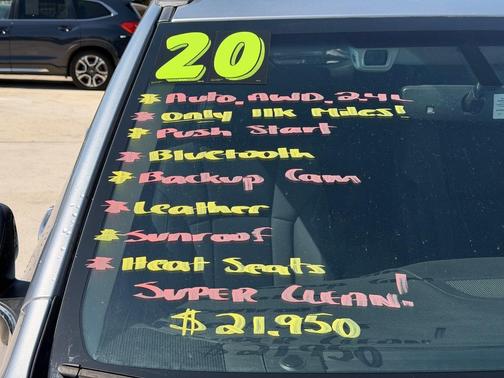 20
* Auto, AWD, 2.4L
* Only 11K Miles!
* Push Start
* Bluetooth
* Backup Cam
* Leather
* Sunroof
* Heat Seats
SUPER CLEAN!
$21,950